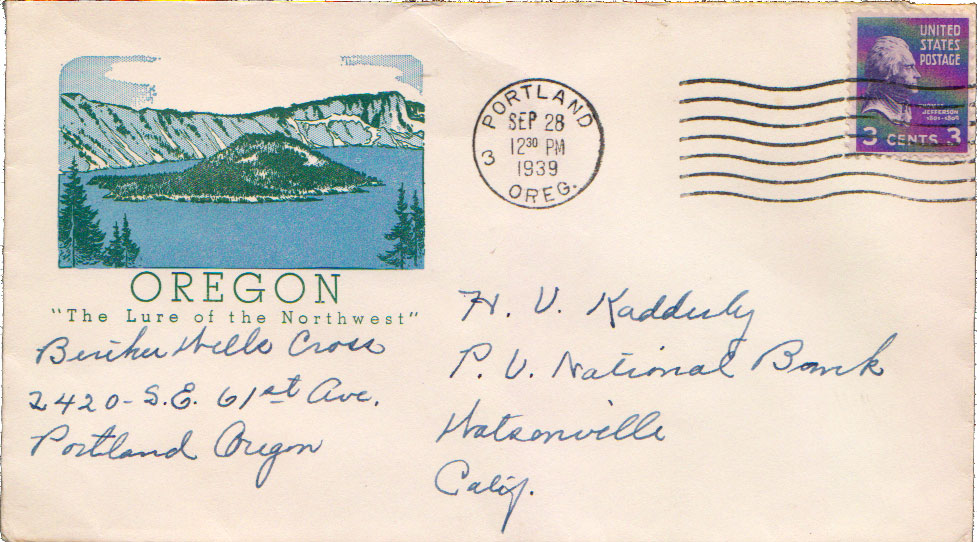 UNITED
STATES
POSTAGE
THOMAS
JEFFERSON
1801-1809
3 CENTS 3
PORTLAND
SEP 28
12³⁰ PM
1939
3
OREG.
OREGON
"The Lure of the Northwest"
Wells Cross
2420 - S.E. 61st Ave.
Portland Oregon
H. V. Kadderly
P. V. National Bank
Watsonville
Calif.